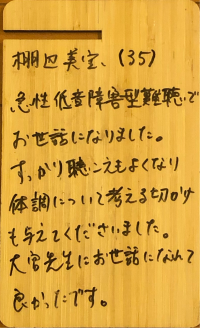 棚辺美宝、(35)
急性低音障害型難聴で
お世話になりました。
すっかり聴こえもよくなり
体調について考える切かけ
も与えてくださいました。
大宮先生にお世話になれて
良かったです。